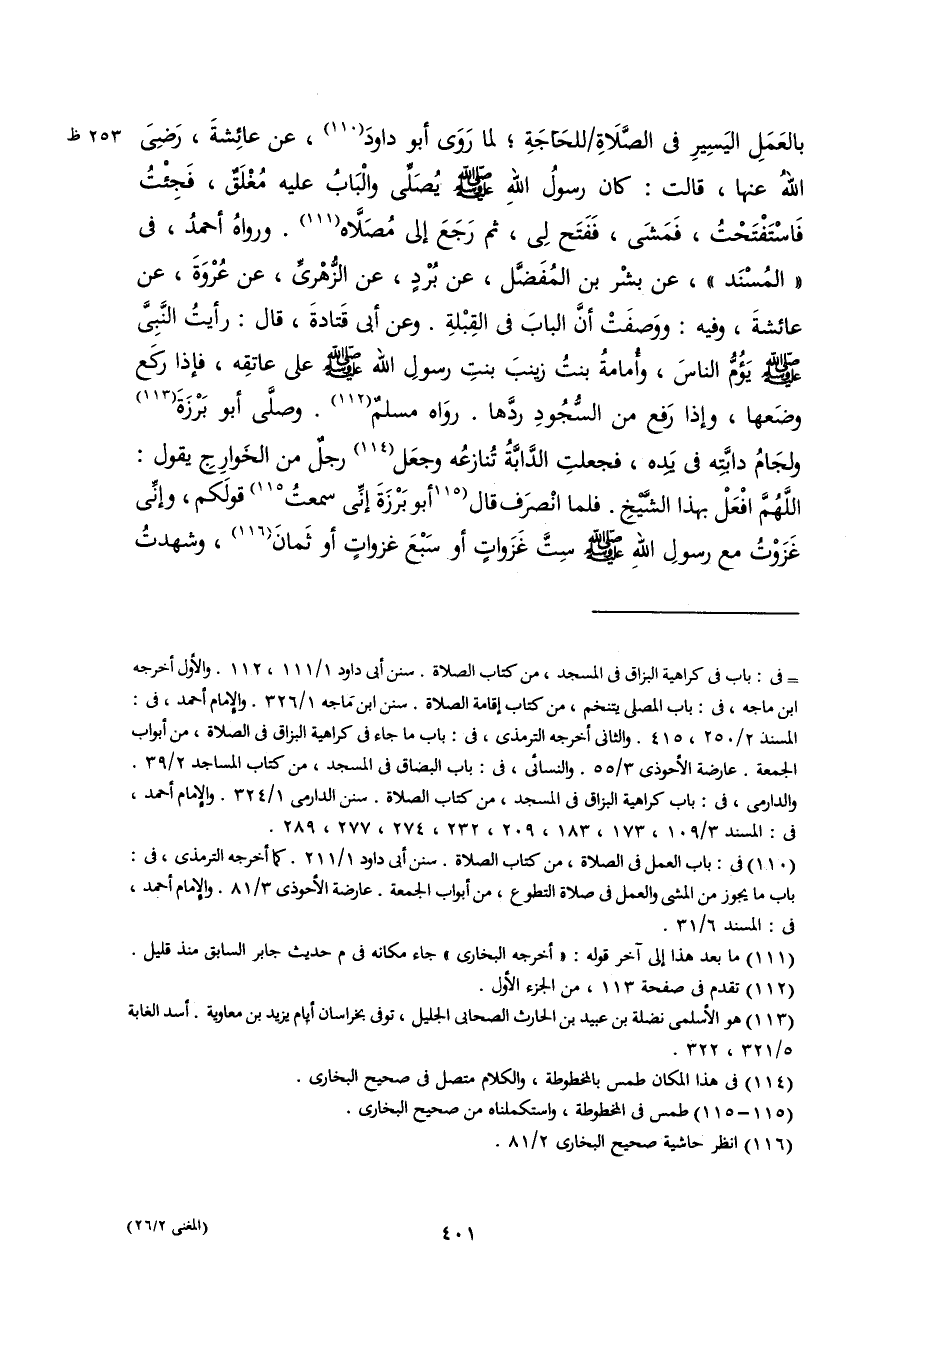 بالعَمَلِ اليَسِيرِ فى الصَّلَاةِ/للحَاجَةِ ؛ لما رَوَى أبو داودَ(١١٠) ، عن عائشةَ ، رَضِىَ ٢٥٣ ظ
اللهُ عنها ، قالت : كان رسولُ اللهِ ﷺ يُصَلِّى والْبَابُ عليه مُغْلَقٌ ، فَجِئْتُ
فَاسْتَفْتَحْتُ ، فَمَشَى ، فَفَتَح لِى ، ثم رَجَعَ إلى مُصَلَّاه(١١١) . ورواهُ أحمدُ ، فى
« المُسْنَد » ، عن بشْر بن المُفَضَّل ، عن بُرْدٍ ، عن الزُّهْرىِّ ، عن عُرْوَةَ ، عن
عائشةَ ، وفيه : ووَصفَتْ أنَّ البابَ فى القِبْلةِ . وعن أبى قَتادةَ ، قال : رأيتُ النَّبِىَّ
ﷺ يَؤُمُّ الناسَ ، وأُمامةُ بنتُ زينبَ بنتِ رسولِ الله ﷺ على عاتقِه ، فإذا ركَع
وضَعها ، وإذا رَفع من السُّجُودِ ردَّها . روَاه مسلمٌ(١١٢) . وصلَّى أبو بَرْزَةَ(١١٣)
ولجَامُ دابَّتِه فى يَدِه ، فجعلتِ الدَّابَّةُ تُنازعُه وجعَل(١١٤) رجلٌ من الخَوارِجِ يقول :
اللَّهُمَّ افْعَلْ بهذا الشَّيْخِ . فلما انْصرَف قال(١١٥أبو بَرْزَةَ إنِّى سمعتُ١١٥) قولَكم ، وإنِّى
غَزَوْتُ مع رسولِ اللهِ ﷺ سِتَّ غَزَواتٍ أو سَبْعَ غزواتٍ أو ثَمانَ(١١٦) ، وشهدتُ
= فى : باب فى كراهية البزاق فى المسجد ، من كتاب الصلاة . سنن أبى داود ١/ ١١١ ، ١١٢ . والأول أخرجه
ابن ماجه ، فى : باب المصلى يتنخم ، من كتاب إقامة الصلاة . سنن ابن ماجه ١/ ٣٢٦ . والإمام أحمد ، فى :
المسند ٢/ ٢٥٠ ، ٤١٥ . والثانى أخرجه الترمذى ، فى : باب ما جاء فى كراهية البزاق فى الصلاة ، من أبواب
الجمعة . عارضة الأحوذى ٣/ ٥٥ . والنسائى ، فى : باب البضاق فى المسجد ، من كتاب المساجد ٢/ ٣٩ .
والدارمى ، فى : باب كراهية البزاق فى المسجد ، من كتاب الصلاة . سنن الدارمى ١/ ٣٢٤ . والإمام أحمد ،
فى : المسند ٣/ ١٠٩ ، ١٧٣ ، ١٨٣ ، ٢٠٩ ، ٢٣٢ ، ٢٧٤ ، ٢٧٧ ، ٢٨٩ .
(١١٠) فى : باب العمل فى الصلاة ، من كتاب الصلاة . سنن أبى داود ١/ ٢١١ . كما أخرجه الترمذى ، فى :
باب ما يجوز من المشى والعمل فى صلاة التطوع ، من أبواب الجمعة . عارضة الأحوذى ٣/ ٨١ . والإمام أحمد ،
فى : المسند ٦/ ٣١ .
(١١١) ما بعد هذا إلى آخر قوله : « أخرجه البخارى » جاء مكانه فى م حديث جابر السابق منذ قليل .
(١١٢) تقدم فى صفحة ١١٣ ، من الجزء الأول .
(١١٣) هو الأسلمى نضلة بن عبيد بن الحارث الصحابى الجليل ، توفى بخراسان أيام يزيد بن معاوية . أسد الغابة
٥/ ٣٢١ ، ٣٢٢ .
(١١٤) فى هذا المكان طمس بالمخطوطة ، والكلام متصل فى صحيح البخارى .
(١١٥–١١٥) طمس فى المخطوطة ، واستكملناه من صحيح البخارى .
(١١٦) انظر حاشية صحيح البخارى ٢/ ٨١ .
٤٠١ (المغنى ٢/ ٢٦)